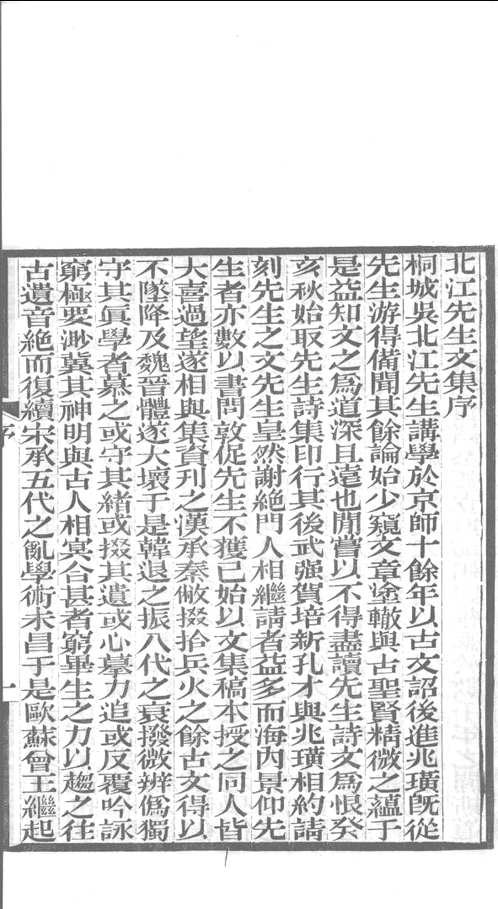 北江先生文集序
桐城吳北江先生講學於京師十餘年以古文詔後進兆璜旣從
先生游得備聞其餘論始少窺文章塗轍與古聖賢精微之蘊于
是益知文之爲道深且遠也閒嘗以不得盡讀先生詩文爲恨癸
亥秋始取先生詩集印行其後武强賀培新孔才與兆璜相約請
刻先生之文先生皇然謝絶門人相繼請者益多而海內景仰先
生者亦數以書問敦促先生不獲已始以文集稿本授之同人皆
大喜過望遂相與集資刊之漢承秦敝掇拾兵火之餘古文得以
不墜降及魏晉體遂大壞于是韓退之振八代之衰撥微辨僞獨
守其眞學者慕之或守其緒或掇其遺或心摹力追或反覆吟詠
窮極要渺冀其神明與古人相宾合甚者窮畢生之力以趨之往
古遺音絶而復續宋承五代之亂學術未昌于是歐蘇曾王繼起
序
一